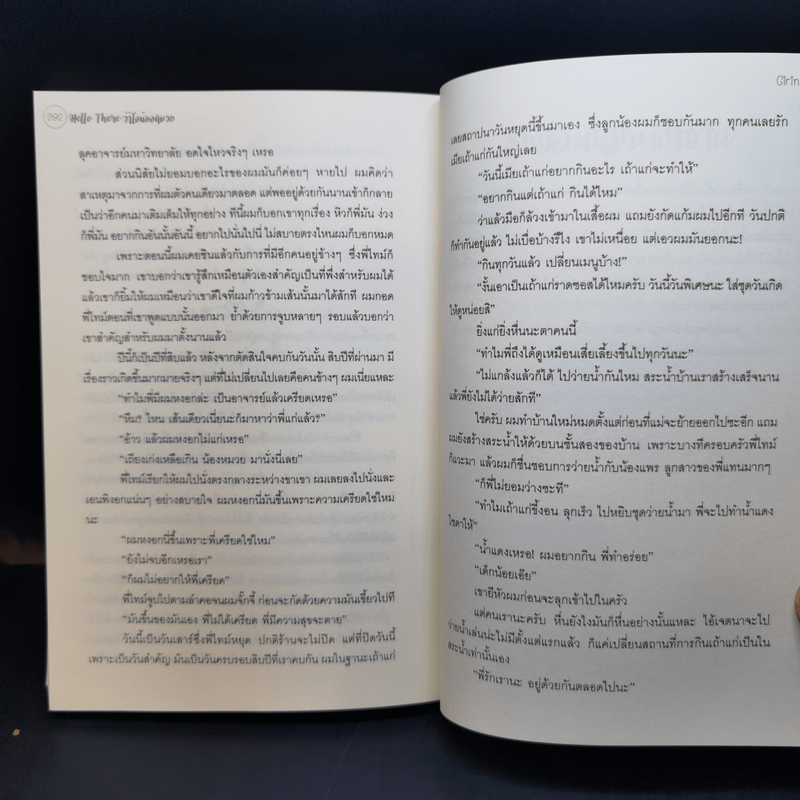 292 Hello There ว่าไงน้องหมวย
ลุคอาจารย์มหาวิทยาลัย อดใจไหวจริงๆ เหรอ
ส่วนนิสัยไม่ยอมบอกอะไรของผมมันก็ค่อยๆ หายไป ผมคิดว่า
สาเหตุมาจากการที่ผมตัวคนเดียวมาตลอด แต่พออยู่ด้วยกันนานเข้าก็กลาย
เป็นว่าอีกคนมาเติมเต็มให้ทุกอย่าง ทีนี้ผมก็บอกเขาทุกเรื่อง หิวก็พี่มัน ง่วง
ก็พี่มัน อยากกินอันนั้นอันนี้ อยากไปนั่นไปนี่ ไม่สบายตรงไหนผมก็บอกหมด
เพราะตอนนี้ผมเคยชินแล้วกับการที่มีอีกคนอยู่ข้างๆ ซึ่งพี่ไทม์ก็
ชอบใจมาก เขาบอกว่าเขารู้สึกเหมือนตัวเองสำคัญเป็นที่พึ่งสำหรับผมได้
แล้วเขาก็ยิ้มให้ผมเหมือนว่าเขาดีใจที่ผมก้าวข้ามเส้นนั้นมาได้สักที ผมกอด
พี่ไทม์ตอนที่เขาพูดแบบนั้นออกมา ย้ำด้วยการจูบหลายๆ รอบแล้วบอกว่า
เขาสำคัญสำหรับผมมาตั้งนานแล้ว
ปีนี้ก็เป็นปีที่สิบแล้ว หลังจากตัดสินใจคบกันวันนั้น สิบปีที่ผ่านมา มี
เรื่องราวเกิดขึ้นมากมายจริงๆ แต่ที่ไม่เปลี่ยนไปเลยคือคนข้างๆ ผมเนี่ยแหละ
“ทำไมพี่มีผมหงอกล่ะ เป็นอาจารย์แล้วเครียดเหรอ”
“หืม? ไหน เส้นเดียวเนี่ยนะก็มาหาว่าพี่แก่แล้ว?”
“อ้าว แล้วผมหงอกไม่แก่เหรอ”
“เถียงเก่งเหลือเกิน น้องหมวย มานั่งนี่เลย”
พี่ไทม์เรียกให้ผมไปนั่งตรงกลางระหว่างขาเขา ผมเลยลงไปนั่งและ
เอนพิงอกแน่นๆ อย่างสบายใจ ผมหงอกนี่มันขึ้นเพราะความเครียดใช่ไหม
นะ
“ผมหงอกนี่ขึ้นเพราะพี่เครียดใช่ไหม”
“ยังไม่จบอีกเหรอเรา”
“ก็ผมไม่อยากให้พี่เครียด”
พี่ไทม์จูบไปตามลำคอจนผมจั๊กจี้ ก่อนจะกัดด้วยความมันเขี้ยวไปที
“มันขึ้นของมันเอง พี่ไม่ได้เครียด พี่มีความสุขจะตาย”
วันนี้เป็นวันเสาร์ซึ่งพี่ไทม์หยุด ปกติร้านจะไม่ปิด แต่ที่ปิดวันนี้
เพราะเป็นวันสำคัญ มันเป็นวันครบรอบสิบปีที่เราคบกัน ผมในฐานะเถ้าแก่
Girin
เลยสถาปนาวันหยุดนี้ขึ้นมาเอง ซึ่งลูกน้องผมก็ชอบกันมาก ทุกคนเลยรัก
เมียเถ้าแก่กันใหญ่เลย
“วันนี้เมียเถ้าแก่อยากกินอะไร เถ้าแก่จะทำให้”
“อยากกินแต่เถ้าแก่ กินได้ไหม”
ว่าแล้วมือก็ล้วงเข้ามาในเสื้อผม แถมยังกัดแก้มผมไปอีกที วันปกติ
ก็ทำกันอยู่แล้ว ไม่เบื่อบ้างรึไง เขาไม่เหนื่อย แต่เอวผมมันยอกนะ!
“กินทุกวันแล้ว เปลี่ยนเมนูบ้าง!”
“งั้นเอาเป็นเถ้าแก่ราดซอสได้ไหมครับ วันนี้วันพิเศษนะ ใส่ชุดวันเกิด
ให้ดูหน่อยสิ”
ยิ่งแก่ยิ่งหื่นนะตาคนนี้
“ทำไมพี่ถึงได้ดูเหมือนเสี่ยเลี้ยงขึ้นไปทุกวันนะ”
“ไม่แกล้งแล้วก็ได้ ไปว่ายน้ำกันไหม สระน้ำบ้านเราสร้างเสร็จนาน
แล้วพี่ยังไม่ได้ว่ายสักที”
ใช่ครับ ผมทำบ้านใหม่หมดตั้งแต่ก่อนที่แม่จะย้ายออกไปซะอีก แถม
ผมยังสร้างสระน้ำให้ด้วยบนชั้นสองของบ้าน เพราะบางทีครอบครัวพี่ไทม์
ก็แวะมา แล้วผมก็ชื่นชอบการว่ายน้ำกับน้องแพร ลูกสาวของพี่แทนมากๆ
“ก็พี่ไม่ยอมว่างซะที”
“ทำไมเถ้าแก่ขี้งอน ลุกเร็ว ไปหยิบชุดว่ายน้ำมา พี่จะไปทำน้ำแดง
โซดาให้”
“น้ำแดงเหรอ! ผมอยากกิน พี่ทำอร่อย”
“เด็กน้อยเอ๊ย”
เขายีหัวผมก่อนจะลุกเข้าไปในครัว
แต่คนเรานะครับ หื่นยังไงมันก็หื่นอย่างนั้นแหละ ไอ้เจตนาจะไป
ว่ายน้ำเล่นน่ะไม่มีตั้งแต่แรกแล้ว ก็แค่เปลี่ยนสถานที่การกินเถ้าแก่เป็นใน
สระน้ำเท่านั้นเอง
“พี่รักเรานะ อยู่ด้วยกันตลอดไปนะ”